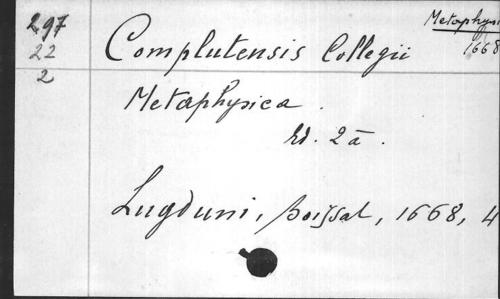 297
22
2
Metaphysi
1668
Complutensis Collegii
Metaphysica.
Ed. 2a.
Lugduni, Boissat, 1668, 4